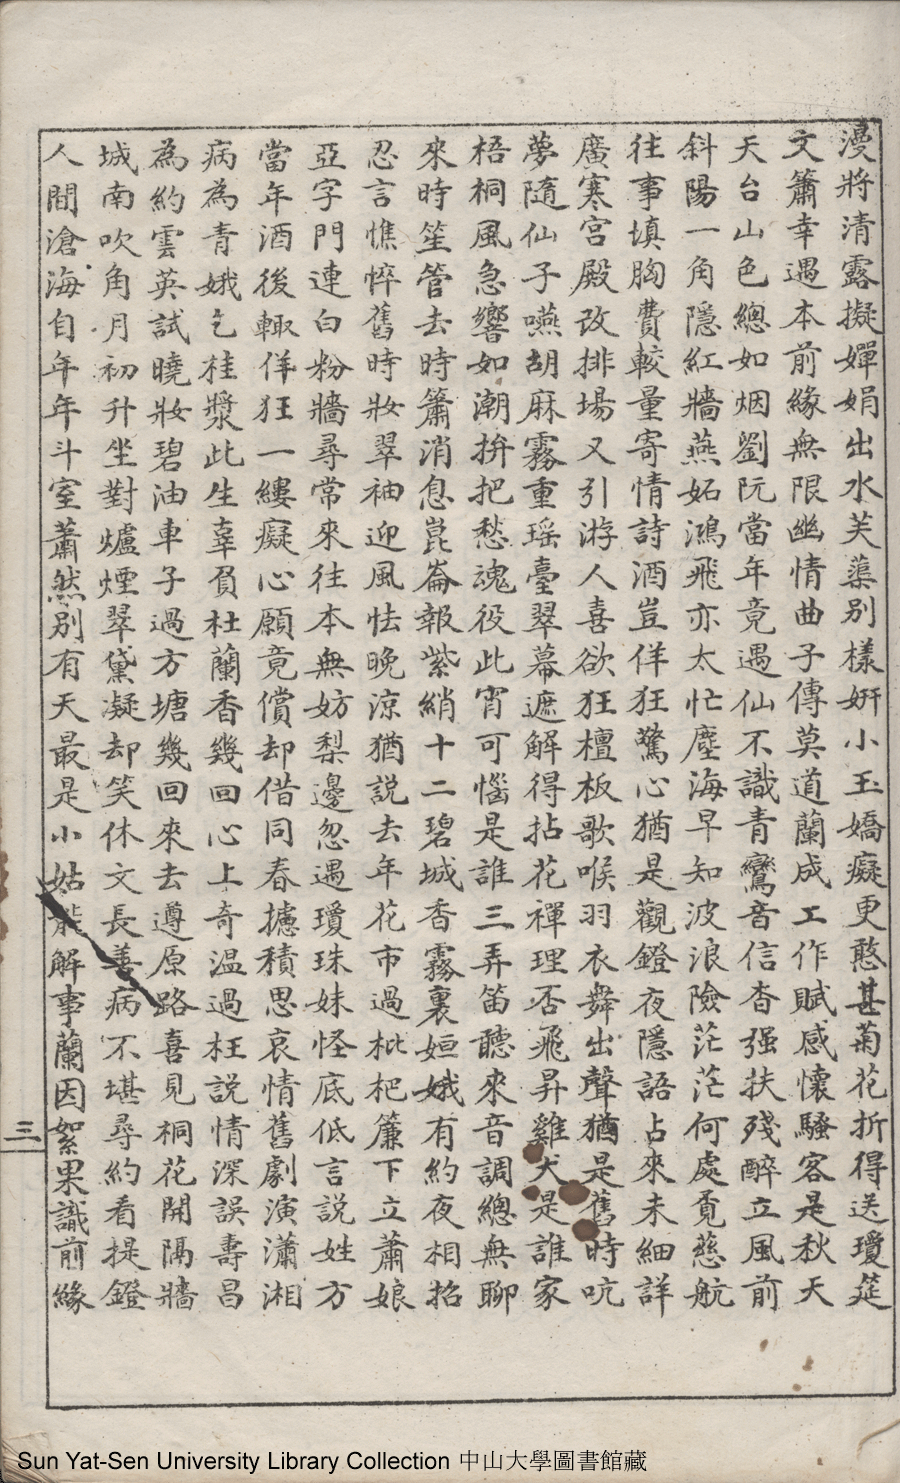 漫將清露擬嬋娟出水芙蕖別樣妍小玉嬌癡更憨甚菊花折得送瓊筵
文簫幸遇本前緣無限幽情曲子傳莫道蘭成工作賦感懷騷客是秋天
天台山色總如烟劉阮當年竟遇仙不識青鸞音信杳强扶殘醉立風前
斜陽一角隱紅牆燕妬鴻飛亦太忙塵海早知波浪險茫茫何處覓慈航
往事填胸費較量寄情詩酒豈佯狂驚心猶是觀鐙夜隱語占來未細詳
廣寒宮殿改排場又引游人喜欲狂檀板歌喉羽衣舞出聲猶是舊時吭
夢隨仙子嚥胡麻霧重瑶臺翠幕遮解得拈花禪理否飛昇雞犬是誰家
梧桐風急響如潮拚把愁魂役此宵可惱是誰三弄笛聽來音調總無聊
來時笙管去時簫消息崑崙報紫綃十二碧城香霧裏姮娥有約夜相招
忍言憔悴舊時妝翠袖迎風怯晚涼猶説去年花市過枇杷簾下立蕭娘
亞字門連白粉牆尋常來往本無妨梨邊忽遇瓊珠妹怪底低言説姓方
當年酒後輙佯狂一縷癡心願竟償却借同春攄積思哀情舊劇演瀟湘
病為青娥乞桂漿此生辜負杜蘭香幾回心上奇温過枉説情深誤壽昌
為約雲英試曉妝碧油車子過方塘幾回來去遵原路喜見桐花開隔牆
城南吹角月初升坐對爐煙翠黛凝却笑休文長善病不堪尋約看提鐙
人間滄海自年年斗室蕭然別有天最是小姑能解事蘭因絮果識前緣
三
Sun Yat-Sen University Library Collection 中山大學圖書館藏